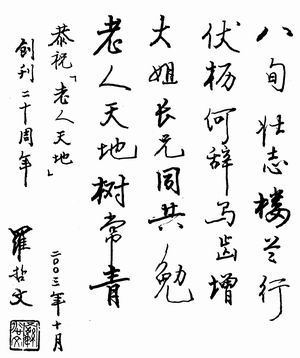 八旬壮志楼兰行
伏枥何辞马齿增
大姐长兄同共勉
老人天地树常青
恭祝「老人天地」
创刊二十周年
二〇〇三年十月
羅哲文